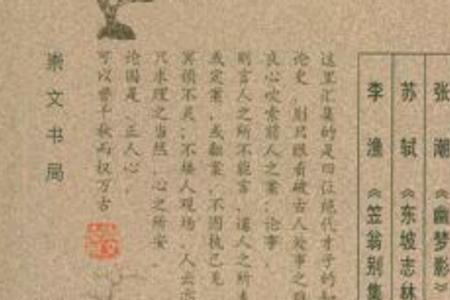 张潮《幽梦影》
苏轼《东坡志林
李渔《笠翁别集
这里汇集的是四位绝代才子的
论史，别只眼看破古人处事之
良心吹索前人之案；论事，
则言人之所不能言，道人之所
或定案，或翻案，不固执己见
冥顽不灵；不矮人观场，人云亦
只求理之当然，心之所安。
论固是，正人心，
可以晋千秋而权万古
崇文书局